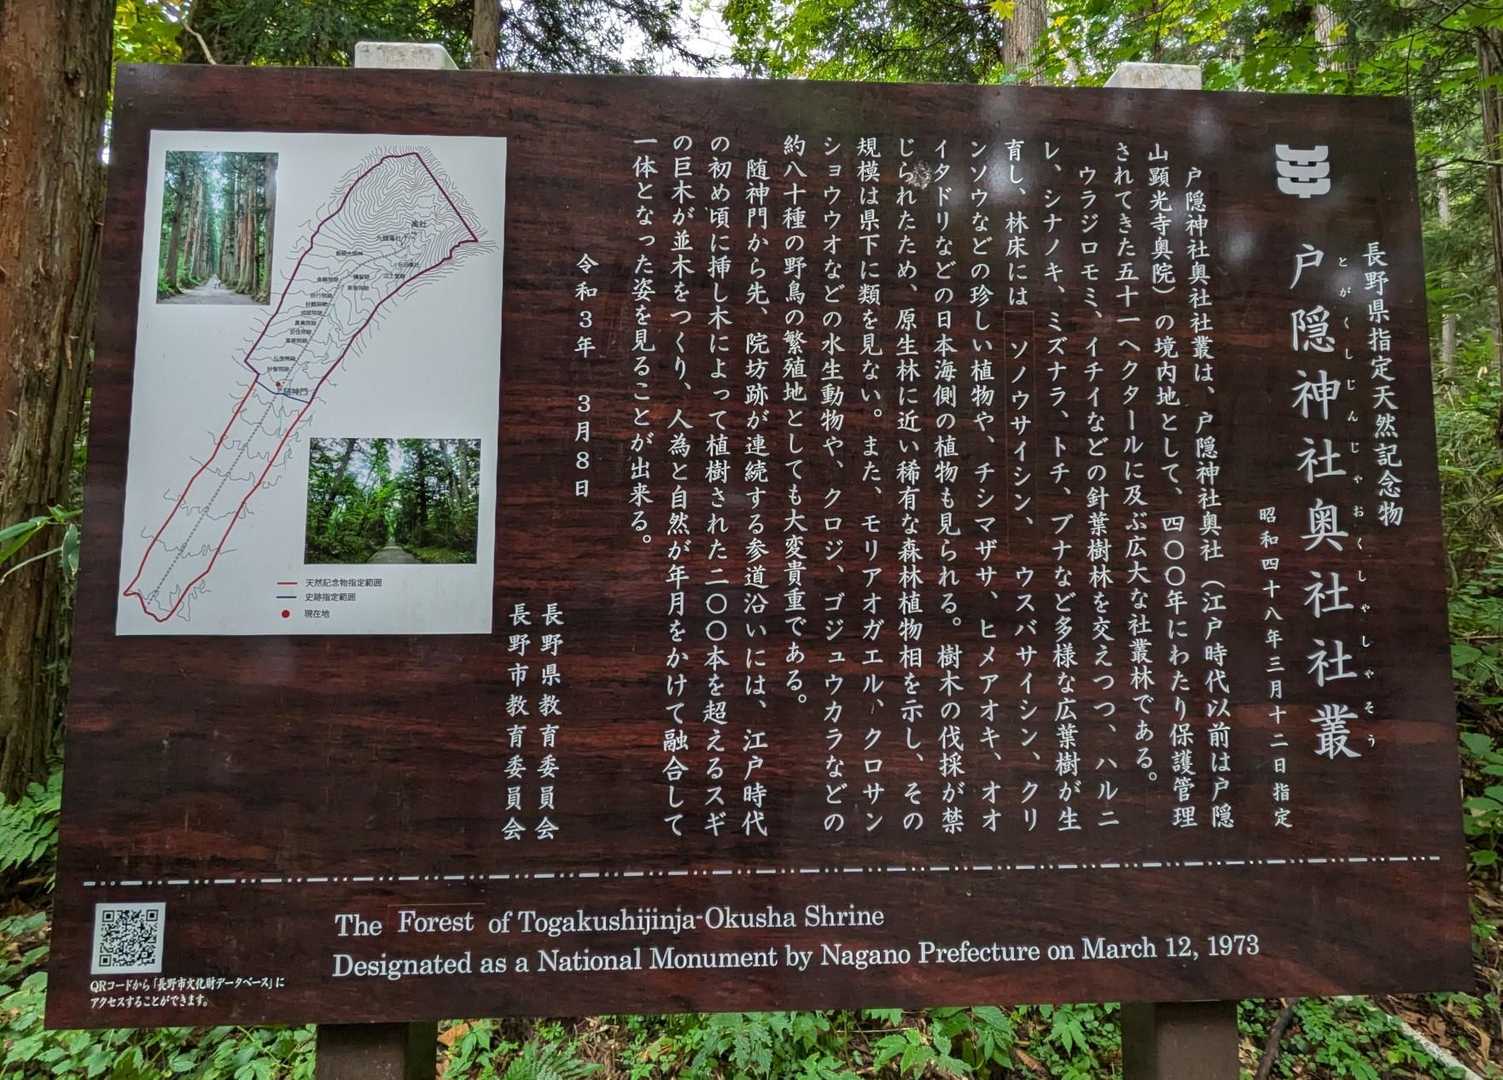 長野県指定天然記念物
戸隠神社奥社社叢
とがくしじんじゃおくしゃしゃそう
昭和四十八年三月十二日指定
戸隠神社奥社社叢は、戸隠神社奥社（江戸時代以前は戸隠
山顕光寺奥院）の境内地として、四〇〇年にわたり保護管理
されてきた五十一ヘクタールに及ぶ広大な社叢林である。
ウラジロモミ、イチイなどの針葉樹林を交えつつ、ハルニ
レ、シナノキ、ミズナラ、トチ、ブナなど多様な広葉樹が生
育し、林床には ソノウサイシン、 ウスバサイシン、クリ
ンソウなどの珍しい植物や、チシマザサ、ヒメアオキ、オオ
イタドリなどの日本海側の植物も見られる。樹木の伐採が禁
じられたため、原生林に近い稀有な森林植物相を示し、その
規模は県下に類を見ない。また、モリアオガエル、クロサン
ショウウオなどの水生動物や、クロジ、ゴジュウカラなどの
約八十種の野鳥の繁殖地としても大変貴重である。
随神門から先、院坊跡が連続する参道沿いには、江戸時代
の初め頃に挿し木によって植樹された二〇〇本を超えるスギ
の巨木が並木をつくり、人為と自然が年月をかけて融合して
一体となった姿を見ることが出来る。
令和３年 ３月８日
長野県教育委員会
長野市教育委員会
奥社
随神門
天然記念物指定範囲
史跡指定範囲
現在地
QRコードから「長野市文化財データベース」に
アクセスすることができます。
The Forest of Togakushijinja-Okusha Shrine
Designated as a National Monument by Nagano Prefecture on March 12, 1973